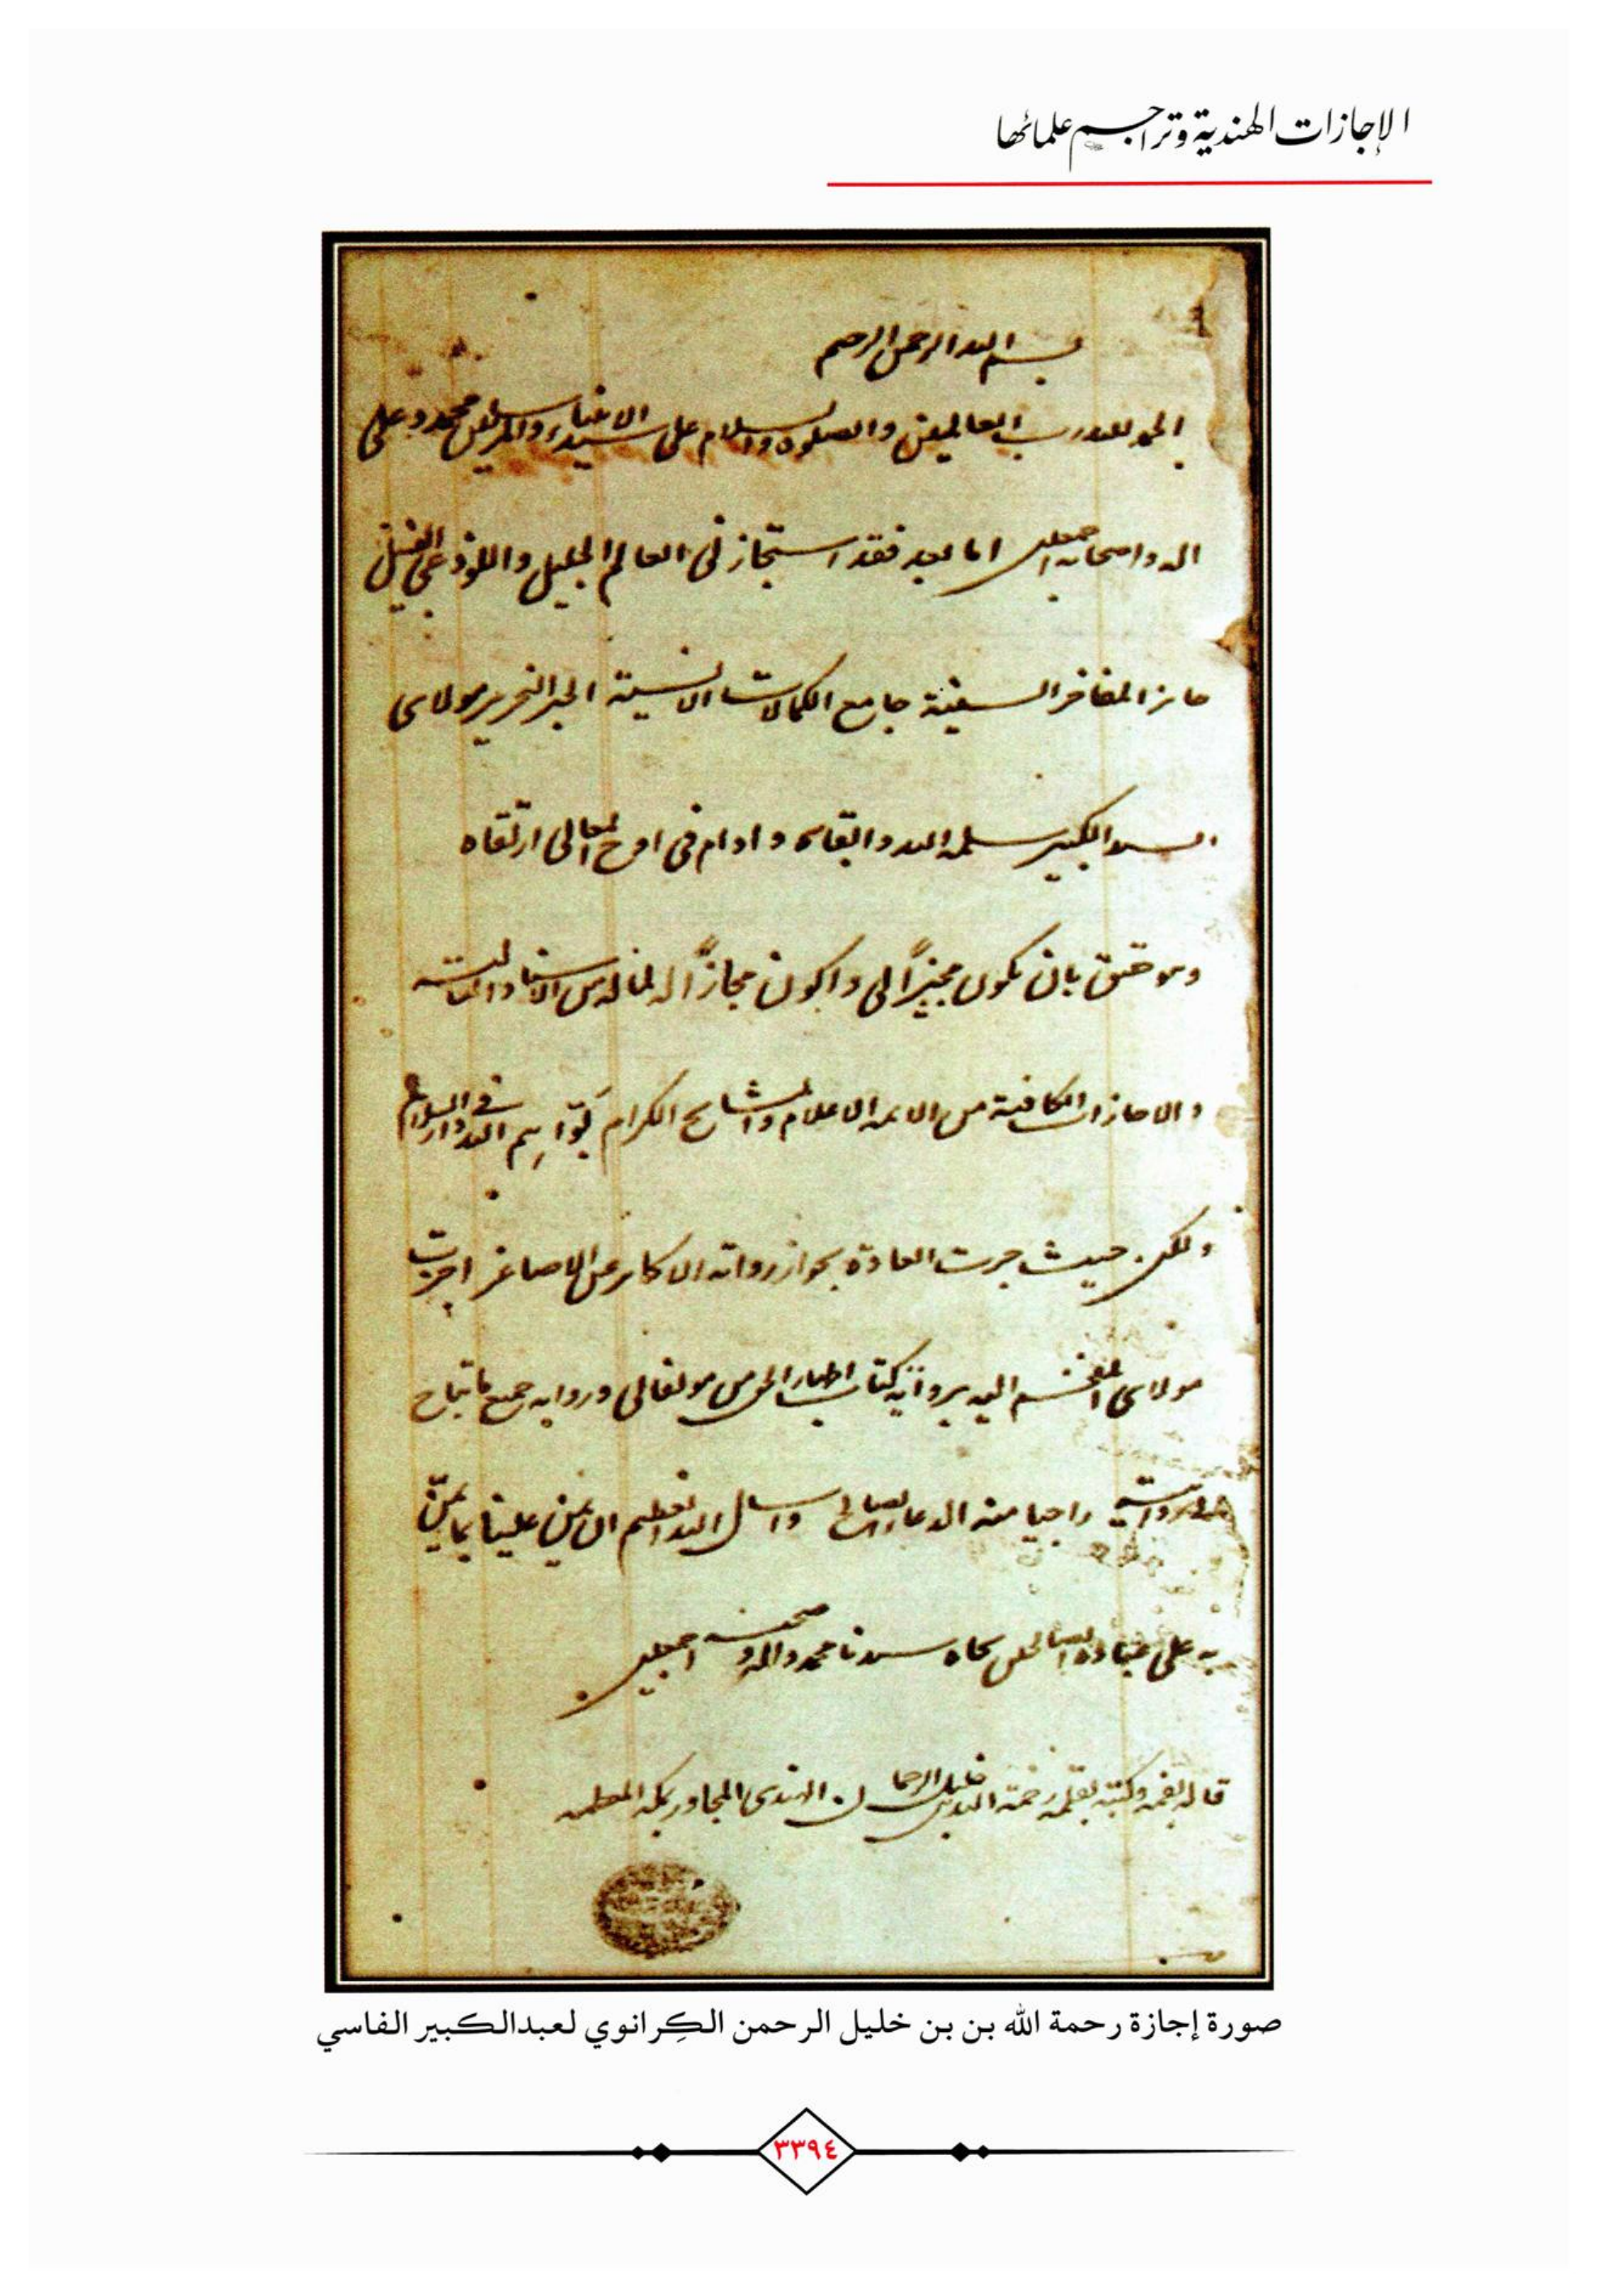 الإجازات الهندية وتراجم علمائها
بسم الله الرحمن الرحيم
الحمد لله رب العالمين والصلوة والسلام على سيد الانبياء والمرسلين محمد وعلى
اله واصحابه اجمعين اما بعد فقد استجاز لى العالم الجليل واللوذعى النبيل
حائز المفاخر السنية جامع الكمالات الانسية الحبر النحرير مولاى
عبد الكبير سلمه الله وابقاه وادام فى اوج المعالى ارتقاه
وهو حقيق بان يكون مجيزاً لى واكون مجازاً له لما له من الاسناد العالية
والاجازات الكافية من الائمه الاعلام والمشايخ الكرام بوّاهم الله فى دار السلام
ولكن حيث جرت العادة بجواز رواية الاكابر عن الاصاغر اجزت
مولاى المفخم اليه برواية كتاب اظهار الحق من مولفاتى وروايه جميع ما تباح
لى روايته راجيا منه الدعاء الصالح واسال الله العظيم ان يمن علينا بما يمنّ
به على عباده الصالحين بجاه سيدنا محمد واله وصحبه اجمعين
قاله بفمه وكتبه بقلمه رحمة الله بن خليل الرحمان الهندى المجاور بمكه المعظمه
صورة إجازة رحمة الله بن بن خليل الرحمن الكِرانوي لعبدالكبير الفاسي
٣٣٩٤